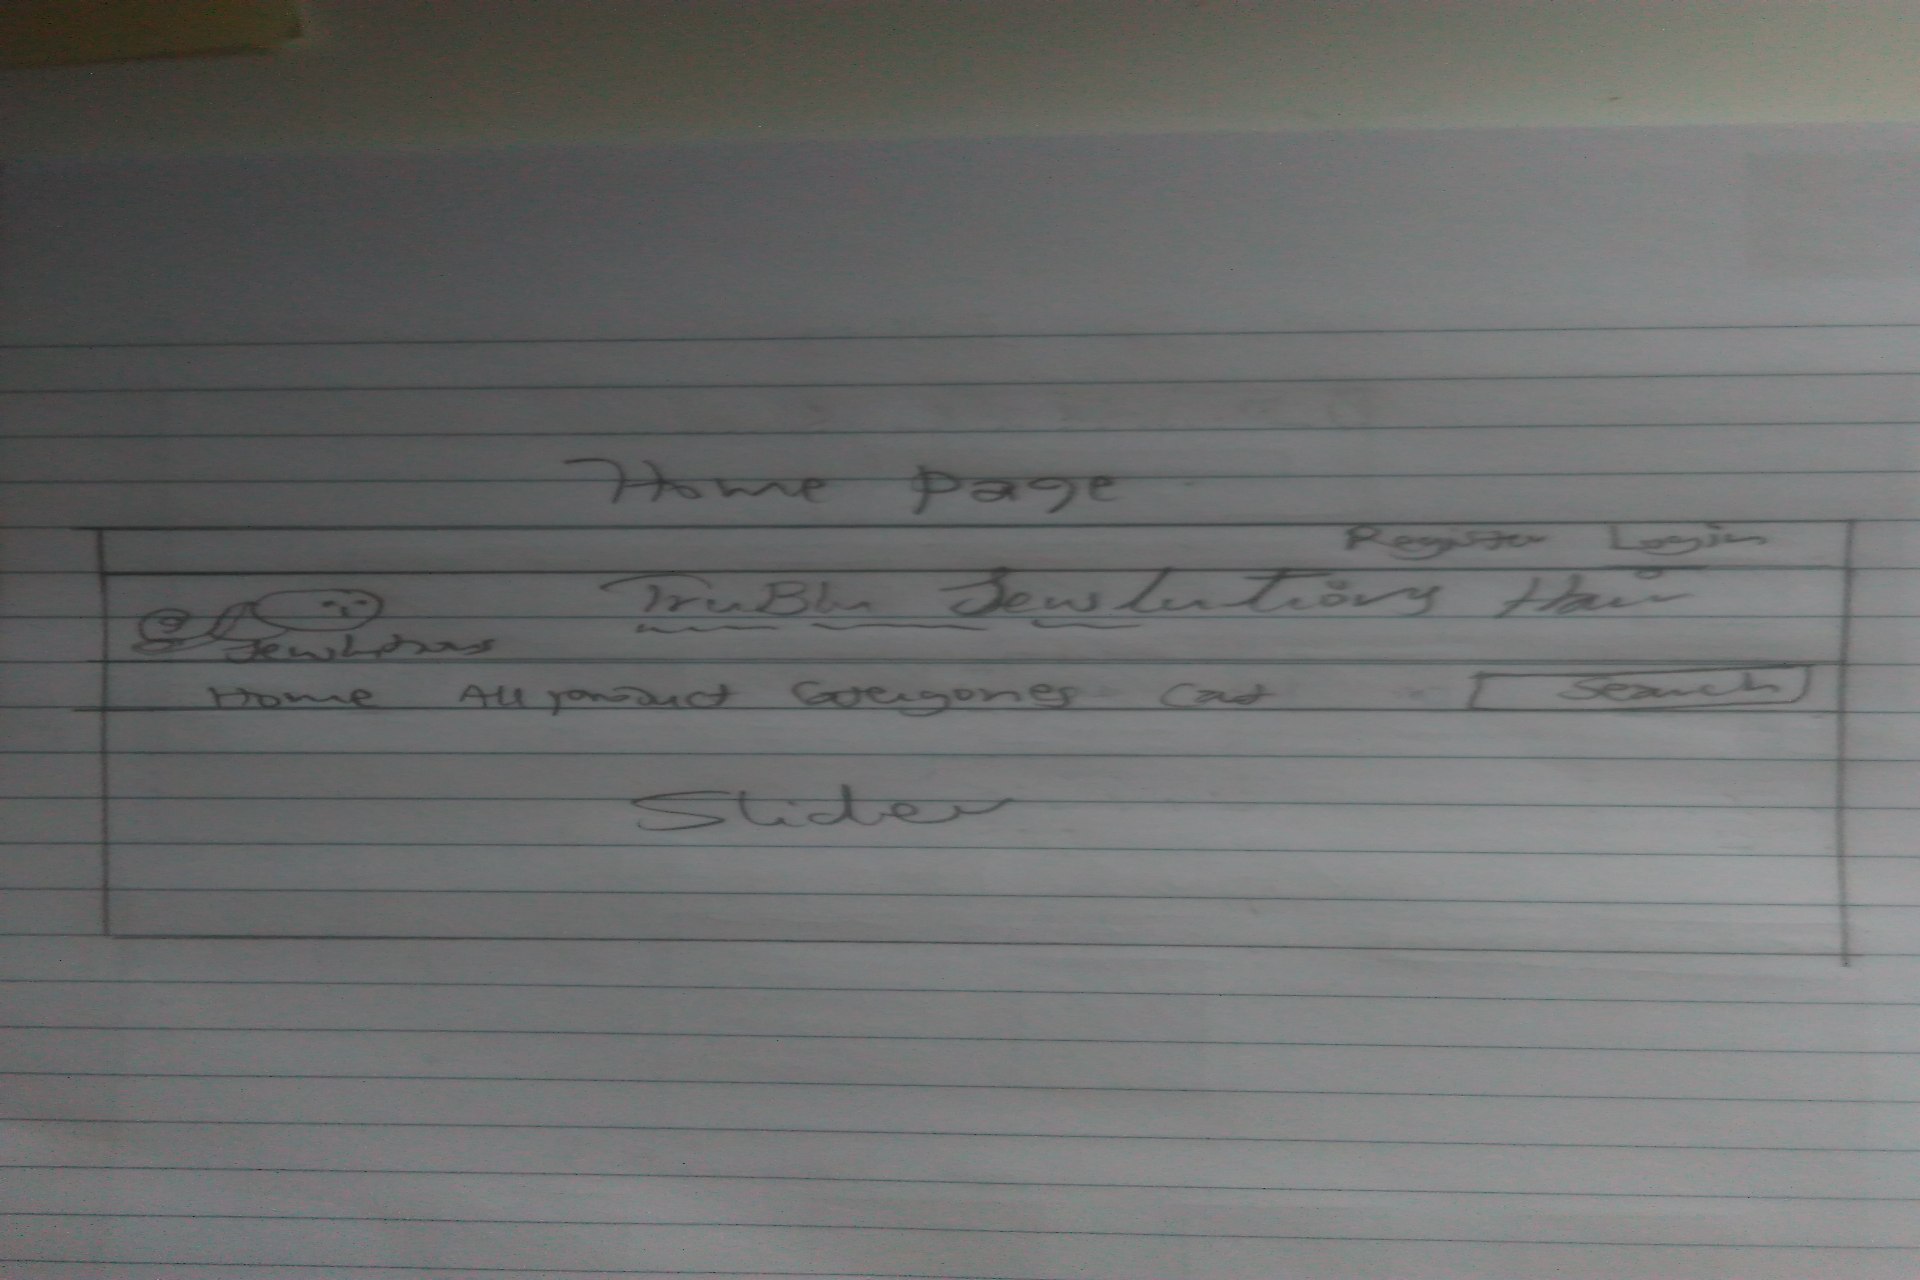 Home page
Register Login
TruBlu Jewlutions Hair
Jewlutions
Home All product Categories Cart Search
Slider